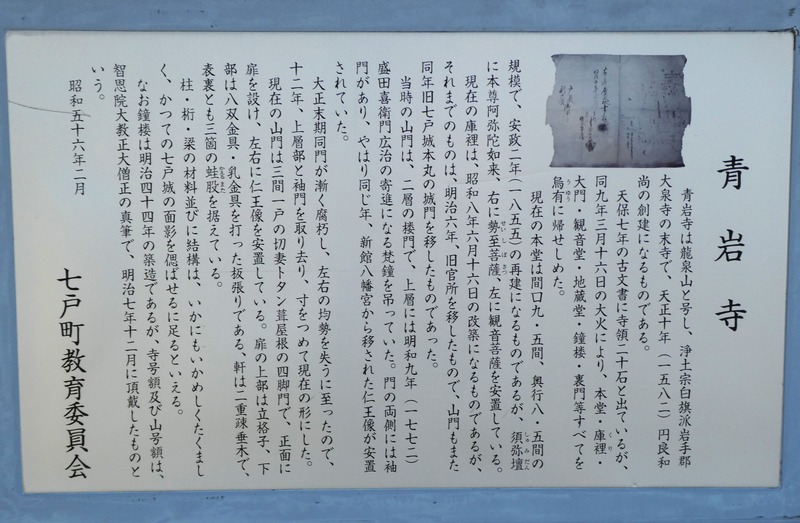 青岩寺
青岩寺は龍泉山と号し、浄土宗白旗派岩手郡
大泉寺の末寺で、天正十年（一五八二）円良和
尚の創建になるものである。
天保七年の古文書に寺領二十石と出ているが、
同九年三月十六日の大火により、本堂・庫裡・
大門・観音堂・地蔵堂・鐘楼・裏門等すべてを
烏有に帰せしめた。
現在の本堂は間口九・五間、奥行八・五間の
規模で、安政二年（一八五五）の再建になるものであるが、須弥壇
に本尊阿弥陀如来、右に勢至菩薩、左に観音菩薩を安置している。
現在の庫裡は、昭和八年六月十六日の改築になるものであるが、
それまでのものは、明治六年、旧官所を移したもので、山門もまた
同年旧七戸城本丸の城門を移したものであった。
当時の山門は、二層の楼門で、上層には明和九年（一七七二）
盛田喜衛門広治の寄進になる梵鐘を吊っていた。門の両側には袖
門があり、やはり同じ年、新館八幡宮から移された仁王像が安置
されていた。
大正末期同門が漸く腐朽し、左右の均勢を失うに至ったので、
十二年、上層部と袖門を取り去り、寸をつめて現在の形にした。
現在の山門は三間一戸の切妻トタン葺屋根の四脚門で、正面に
扉を設け、左右に仁王像を安置している。扉の上部は立格子、下
部は八双金具・乳金具を打った板張りである、軒は二重疎垂木で、
表裏とも三箇の蛙股を据えている。
柱・桁・梁の材料並びに結構は、いかにもいかめしくたくまし
く、かつての七戸城の面影を偲ばせるに足るといえる。
なお鐘楼は明治四十四年の築造であるが、寺号額及び山号額は、
智恩院大教正大僧正の真筆で、明治七年十二月に頂戴したものと
いう。
昭和五十六年二月
七戸町教育委員会